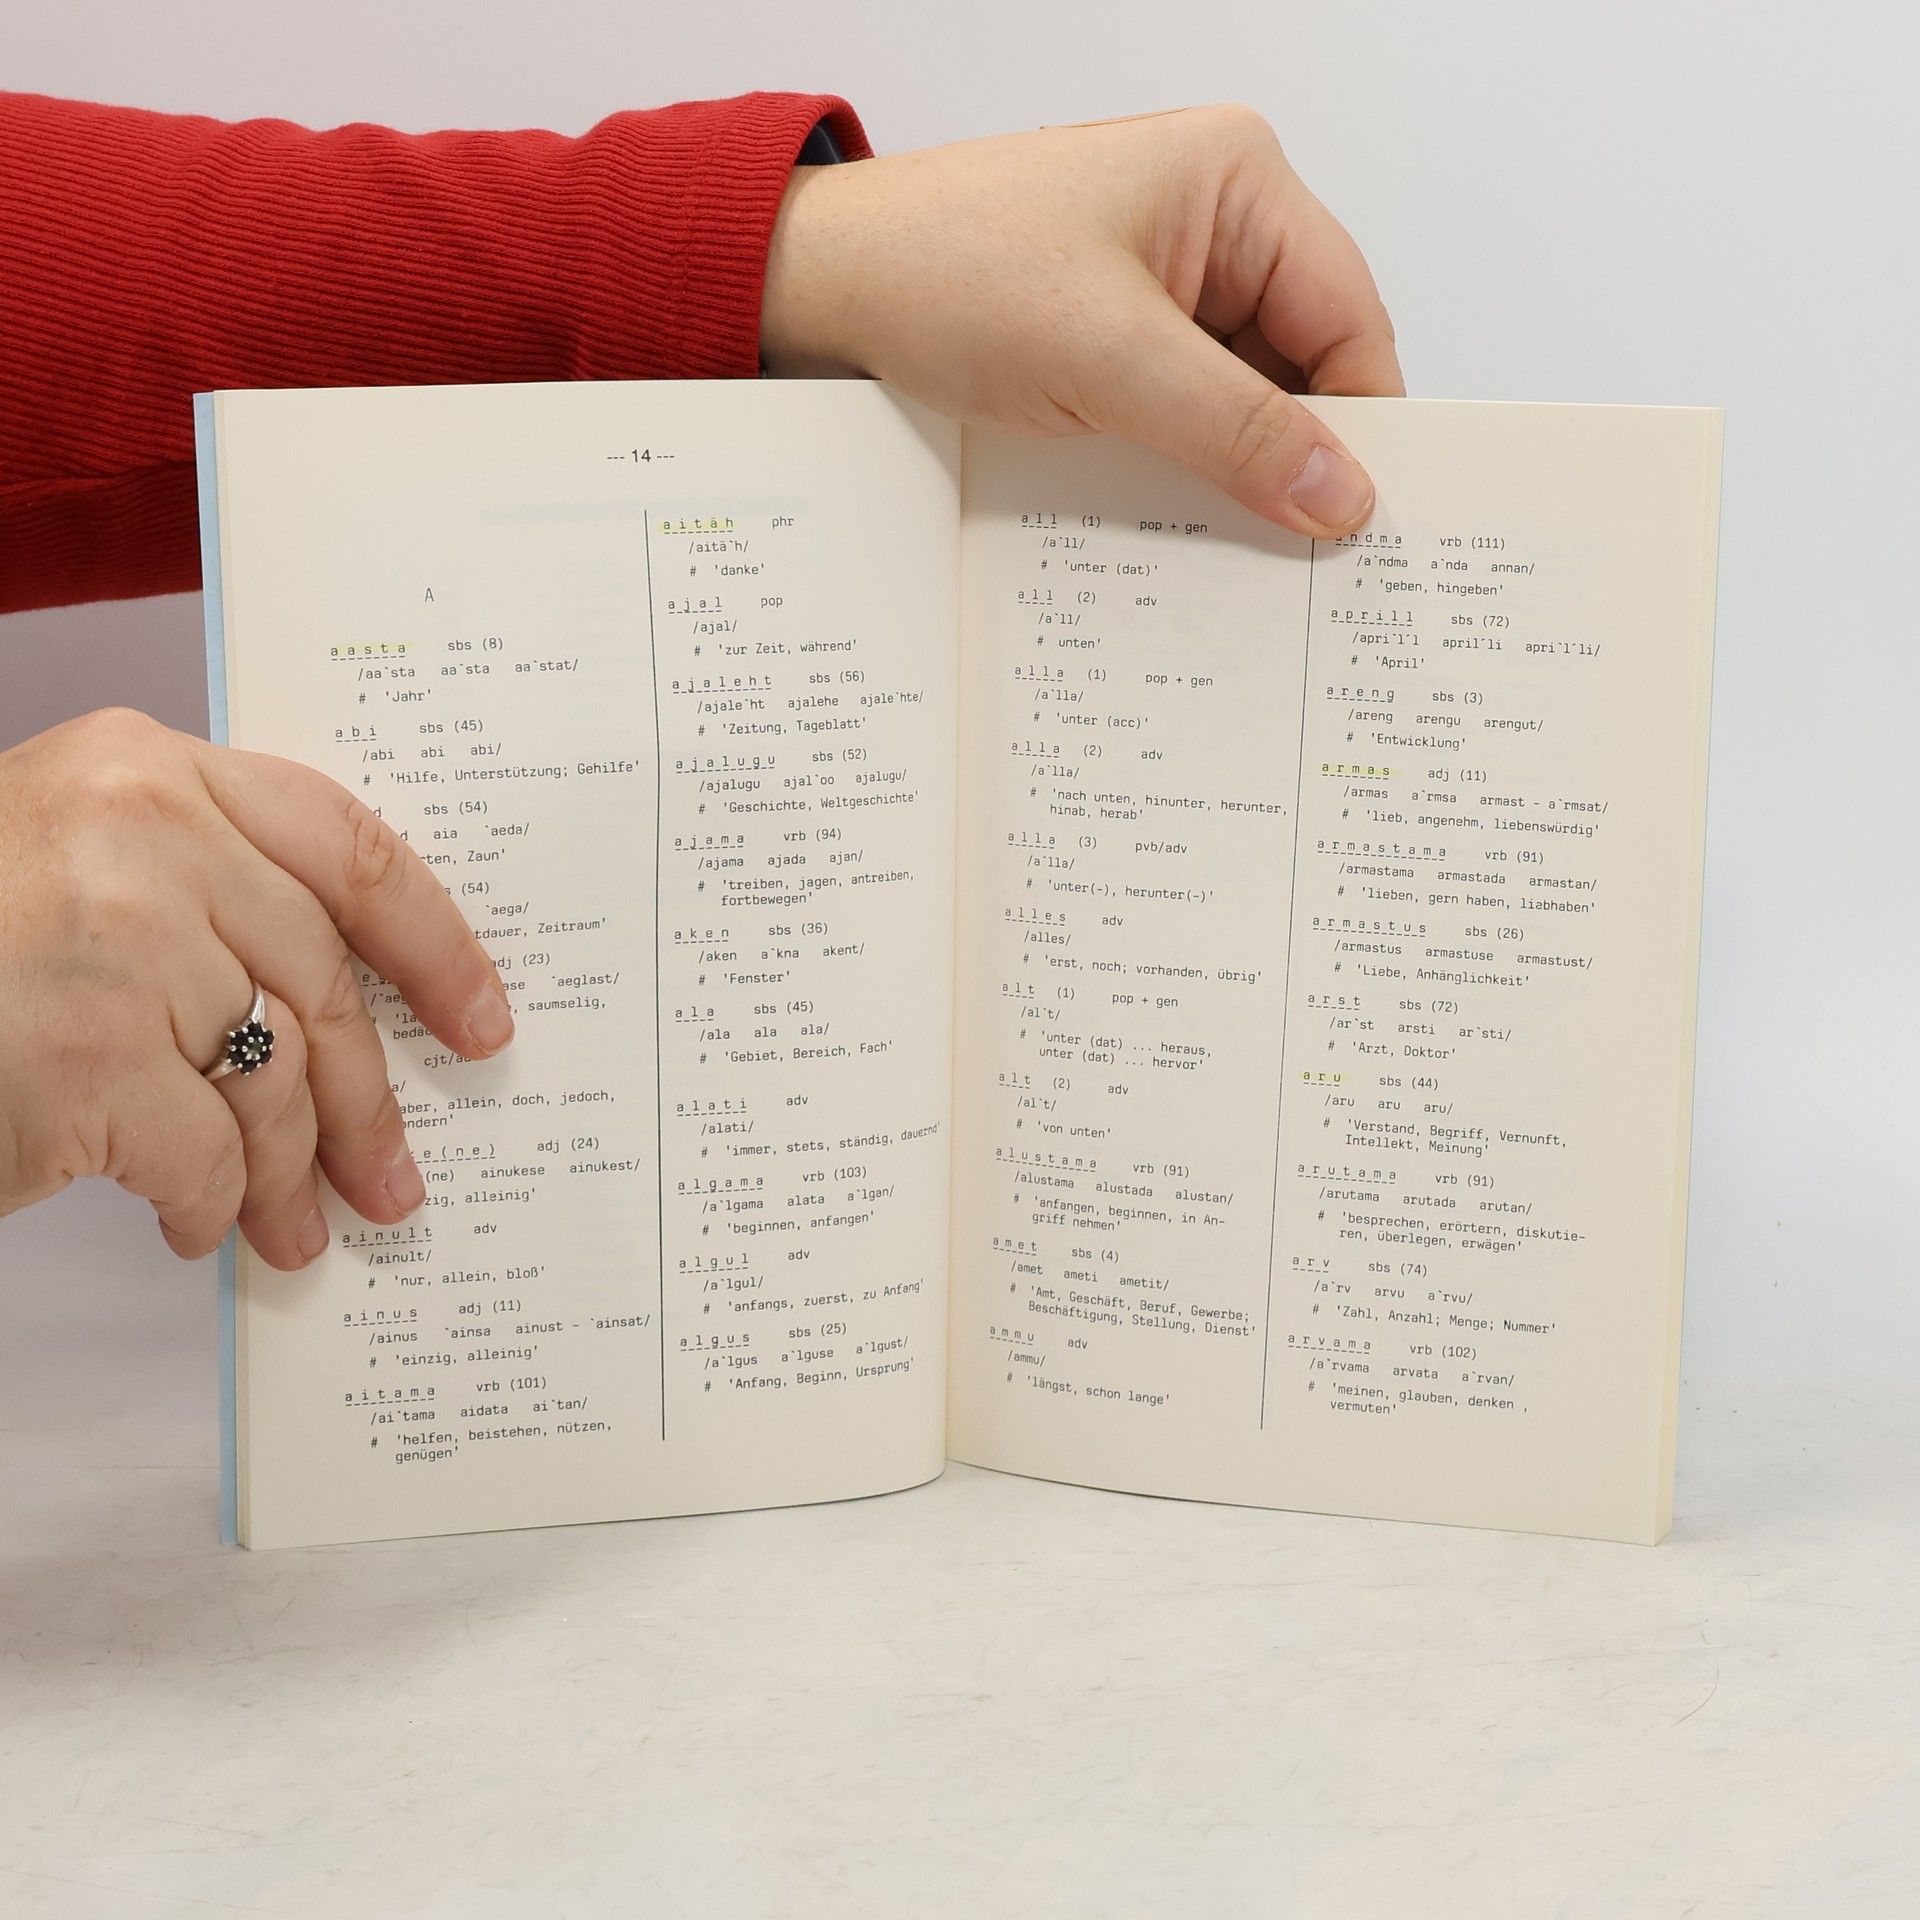 --- 14 ---
A
aasta sbs (8)
/aa`sta aa`sta aa`stat/
# 'Jahr'
abi sbs (45)
/abi abi abi/
# 'Hilfe, Unterstützung; Gehilfe'
sbs (54)
aia `aeda/
Zaun'
(54)
`aega/
Zeitraum'
adj (23)
`aeglast/
saumselig,
aber, allein, doch, jedoch,
adj (24)
(ne) ainukese ainukest/
alleinig'
ainult adv
/ainult/
# 'nur, allein, bloß'
ainus adj (11)
/ainus `ainsa ainust - `ainsat/
# 'einzig, alleinig'
aitama vrb (101)
/ai`tama aidata ai`tan/
# 'helfen, beistehen, nützen,
genügen'
aitäh phr
/aitä`h/
# 'danke'
ajal pop
/ajal/
# 'zur Zeit, während'
ajaleht sbs (56)
/ajale`ht ajalehe ajale`hte/
# 'Zeitung, Tageblatt'
ajalugu sbs (52)
/ajalugu ajal`oo ajalugu/
# 'Geschichte, Weltgeschichte'
ajama vrb (94)
/ajama ajada ajan/
# 'treiben, jagen, antreiben,
fortbewegen'
aken sbs (36)
/aken a`kna akent/
# 'Fenster'
ala sbs (45)
/ala ala ala/
# 'Gebiet, Bereich, Fach'
alati adv
/alati/
# 'immer, stets, ständig, dauernd'
algama vrb (103)
/a`lgama alata a`lgan/
# 'beginnen, anfangen'
algul adv
/a`lgul/
# 'anfangs, zuerst, zu Anfang'
algus sbs (25)
/a`lgus a`lguse a`lgust/
# 'Anfang, Beginn, Ursprung'
all (1) pop + gen
/a`ll/
# 'unter (dat)'
all (2) adv
/a`ll/
# unten'
alla (1) pop + gen
/a`lla/
# 'unter (acc)'
alla (2) adv
/a`lla/
# 'nach unten, hinunter, herunter,
hinab, herab'
alla (3) pvb/adv
/a`lla/
# 'unter(-), herunter(-)'
alles adv
/alles/
# 'erst, noch; vorhanden, übrig'
alt (1) pop + gen
/al`t/
# 'unter (dat) ... heraus,
unter (dat) ... hervor'
alt (2) adv
/al`t/
# 'von unten'
alustama vrb (91)
/alustama alustada alustan/
# 'anfangen, beginnen, in An-
griff nehmen'
amet sbs (4)
/amet ameti ametit/
# 'Amt, Geschäft, Beruf, Gewerbe;
Beschäftigung, Stellung, Dienst'
ammu adv
/ammu/
# 'längst, schon lange'
andma vrb (111)
/a`ndma a`nda annan/
# 'geben, hingeben'
aprill sbs (72)
/apri`l´l april´li apri`l´li/
# 'April'
areng sbs (3)
/areng arengu arengut/
# 'Entwicklung'
armas adj (11)
/armas a`rmsa armast - a`rmsat/
# 'lieb, angenehm, liebenswürdig'
armastama vrb (91)
/armastama armastada armastan/
# 'lieben, gern haben, liabhaben'
armastus sbs (26)
/armastus armastuse armastust/
# 'Liebe, Anhänglichkeit'
arst sbs (72)
/ar`st arsti ar`sti/
# 'Arzt, Doktor'
aru sbs (44)
/aru aru aru/
# 'Verstand, Begriff, Vernunft,
Intellekt, Meinung'
arutama vrb (91)
/arutama arutada arutan/
# 'besprechen, erörtern, diskutie-
ren, überlegen, erwägen'
arv sbs (74)
/a`rv arvu a`rvu/
# 'Zahl, Anzahl; Menge; Nummer'
arvama vrb (102)
/a`rvama arvata a`rvan/
# 'meinen, glauben, denken ,
vermuten'